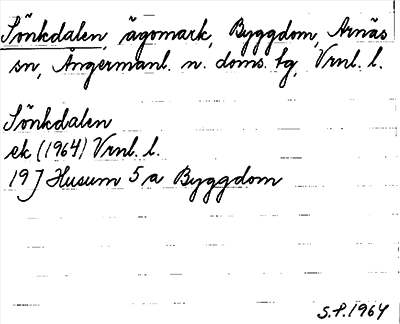 Sönkdalen, ägomark, Byggdom, Arnäs
sn, Ångermanl. n. doms. tg, Vrnl. l.
Sönkdalen
ek (1964) Vrnl. l.
19J Husum 5 a Byggdom
S.P. 1964